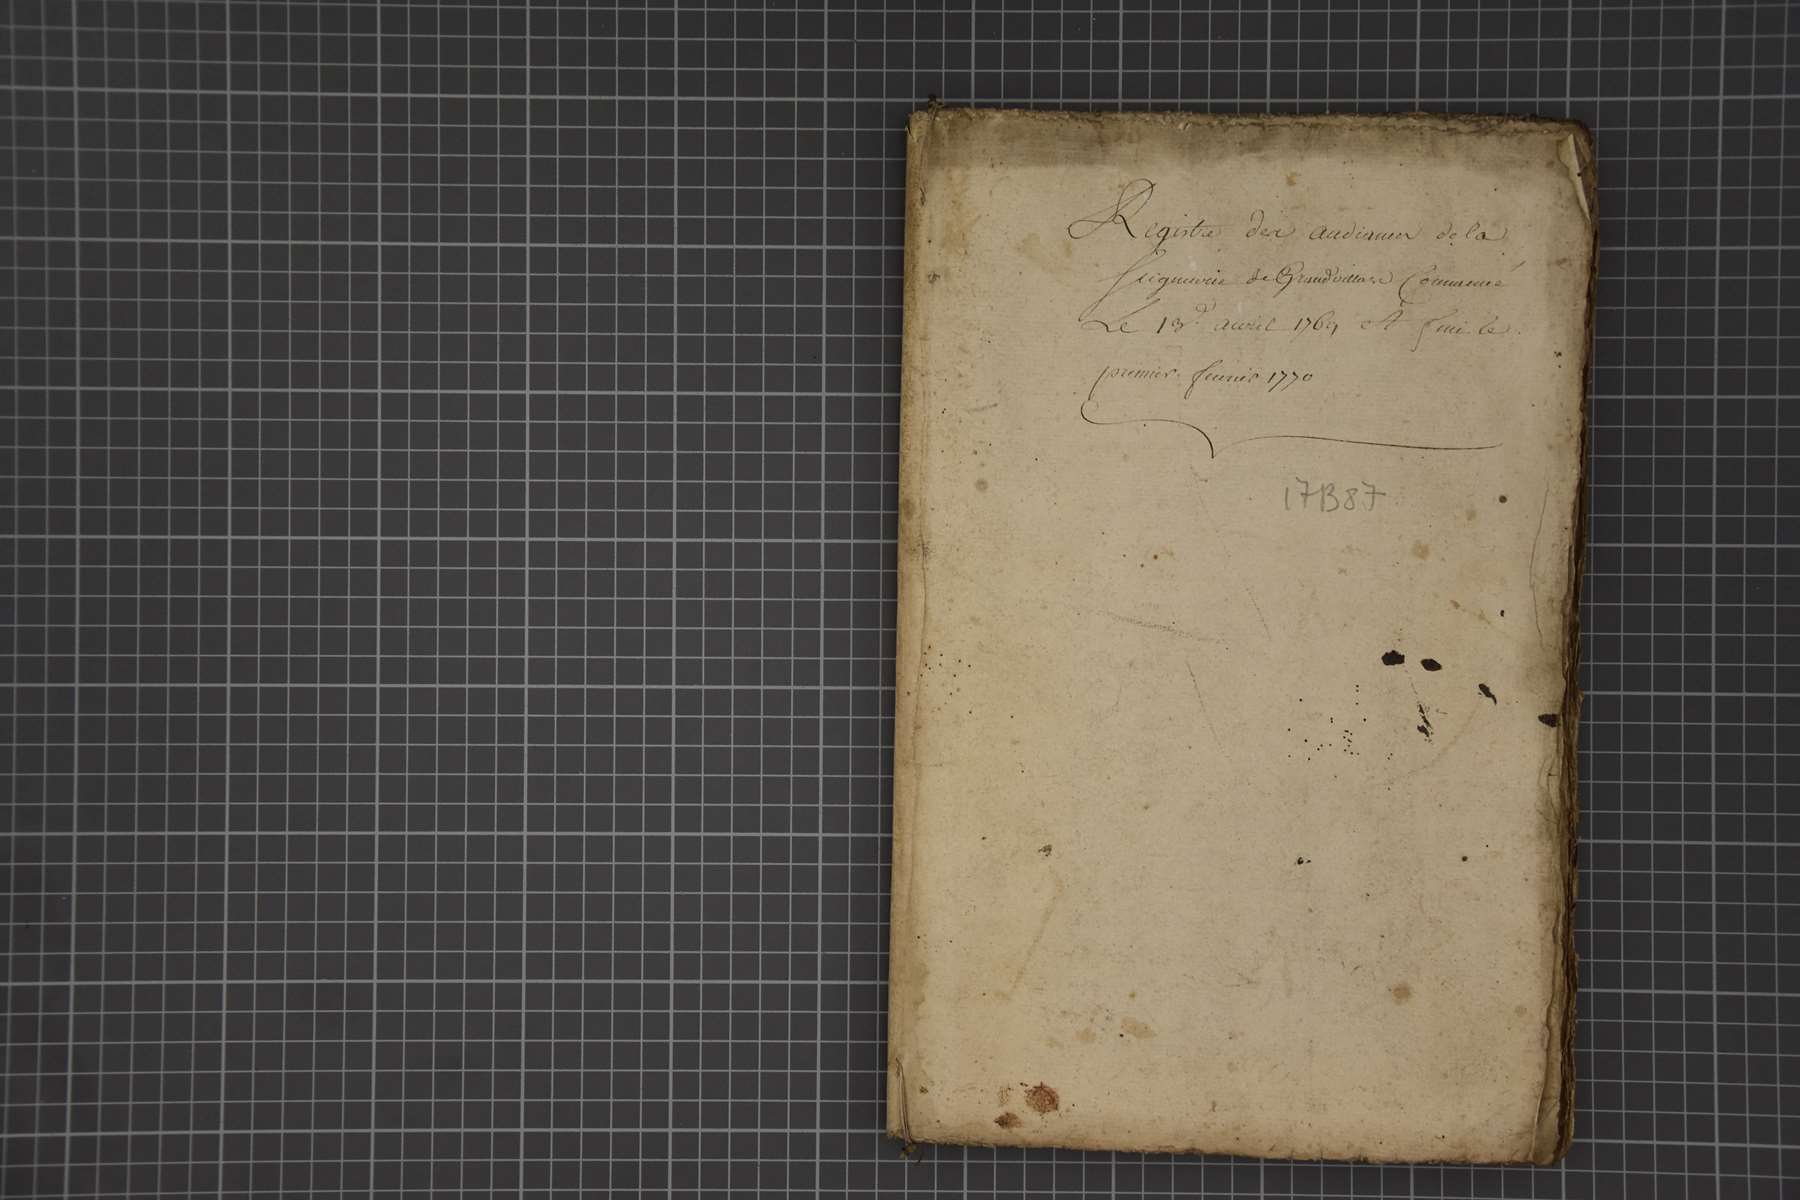 Registre des audiances de la
Seigneurie de Grandvillars Commencé
Le 13.e avril 1769 et fini le
premier fevrier 1770
17B87